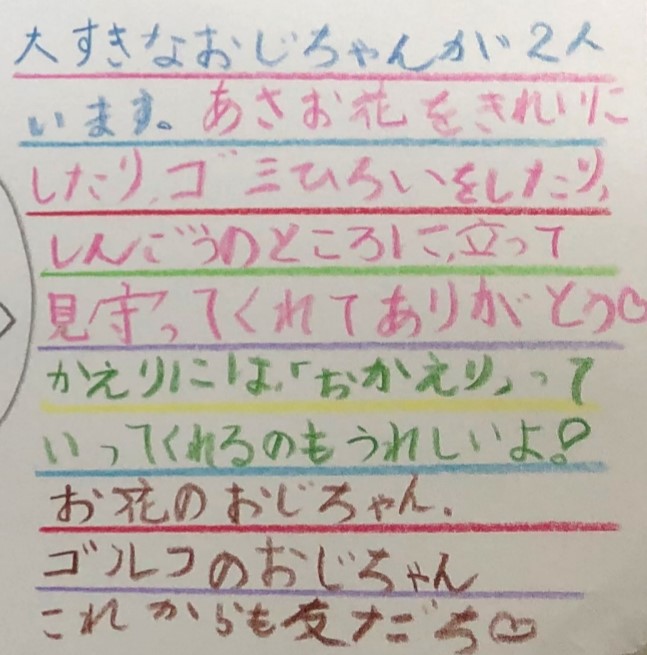 大すきなおじちゃんが2人
います。あさお花をきれいに
したり、ゴミひろいをしたり、
しんごうのところに、立って
見守ってくれてありがとう♡
かえりには、「おかえり」って
いってくれるのもうれしいよ♡
お花のおじちゃん、
ゴルフのおじちゃん
これからも友だち♡